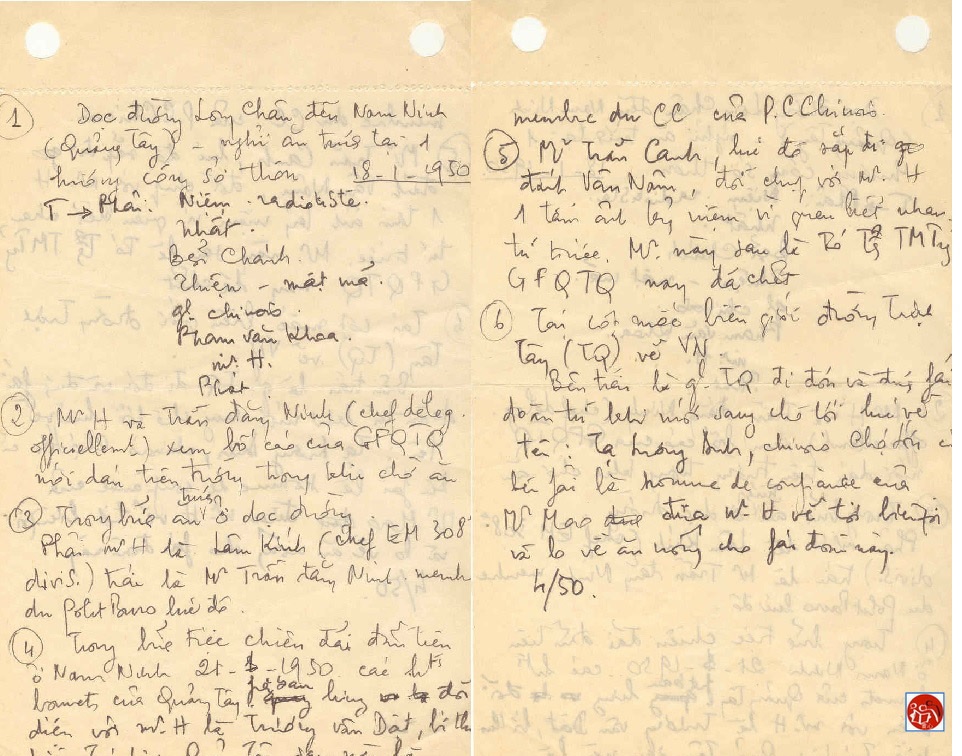 ① Dọc đường Long Châu đến Nam Ninh
(Quảng Tây) – nghỉ ăn trưa tại 1
hương công sở thôn 18-1-1950
T → Phải: Niệm - radioliste.
Nhất.
Bẩy Chánh.
Thiện – mật mã.
gf. chinois.
Phạm văn Khoa.
Mr. H.
Phát
② Mr H và Trần đăng Ninh (chef déleg.
officiellent) xem bố cáo của GFQTQ
mới dán trên tường, trong khi chờ ăn
③ Trong bữa ăn trưa ở dọc đường.
Phải Mr H là Lâm Kính (chef EM 308
divis.) trái là Mr Trần đăng Ninh memb
du Polit Buro lúc đó.
④ Trong bữa tiệc chiêu đãi đầu tiên
ở Nam Ninh 21- -1950 các
của Quảng Tây
diện với Mr. H là Trương văn Dật, bí thư
membre du CC của P.C Chinois.
⑤ Mr Trần Canh, lúc đó sắp đi
đánh Vân Nam, đổi chụp với Mr. H
1 tấm ảnh kỷ niệm vì quen biết nhau
từ trước. Mr. này sau là Phó TMTg
GFQTQ nay đã chết
⑥ Tại cột mốc biên giới đường
Tây (TQ) về VN
Bên trái là gf. TQ đi đón và đưa fái
đoàn từ khi mới sang cho tới lúc về
tên:
bên fải là homme de confiance của
Mr Mao đưa Mr. H về tới biên jới
và lo về ăn uống cho fái đoàn này.
4/50.